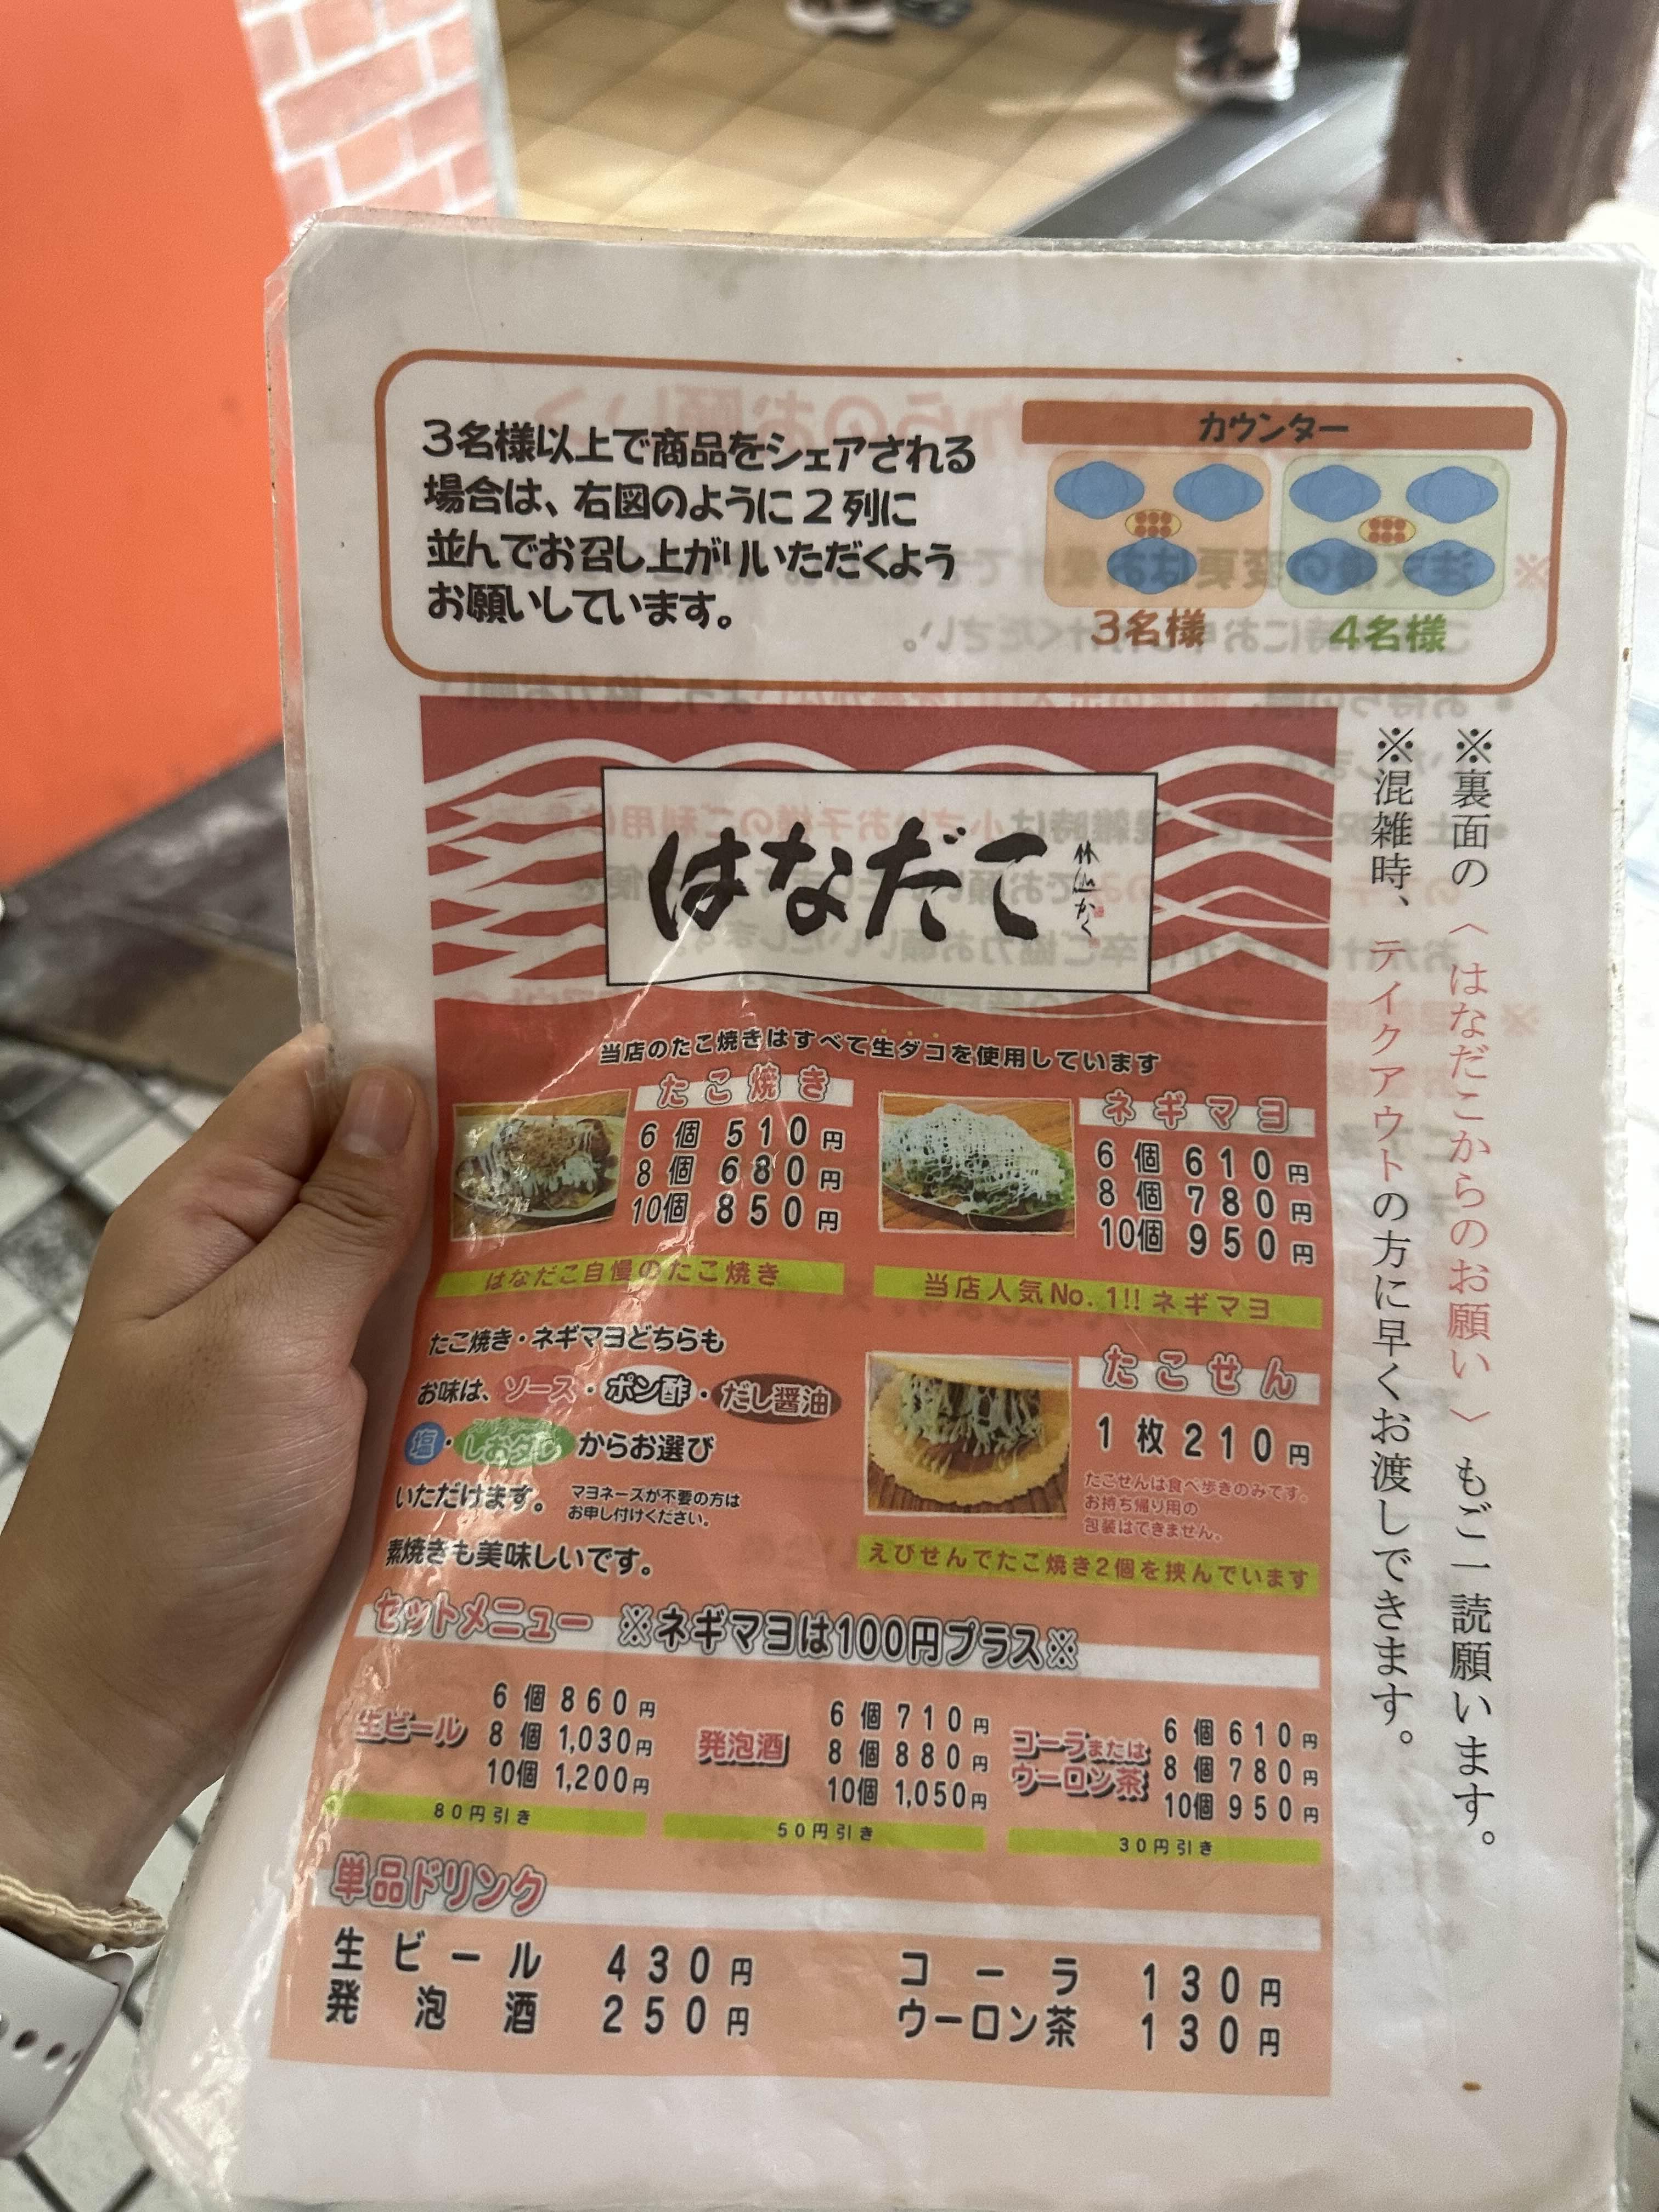 3名様以上で商品をシェアされる
場合は、右図のように2列に
並んでお召し上がりいただくよう
お願いしています。
カウンター
3名様
4名様
※裏面の〈はなだこからのお願い〉もご一読願います。
※混雑時、テイクアウトの方に早くお渡しできます。
はなだこ
当店のたこ焼きはすべて生ダコを使用しています
たこ焼き
6個 510円
8個 680円
10個 850円
はなだこ自慢のたこ焼き
ネギマヨ
6個 610円
8個 780円
10個 950円
当店人気No.1!!ネギマヨ
たこ焼き・ネギマヨどちらも
お味は、ソース・ポン酢・だし醤油
塩・しおダレからお選び
いただけます。
マヨネーズが不要の方は
お申し付けください。
素焼きも美味しいです。
たこせん
1枚210円
たこせんは食べ歩きのみです。
お持ち帰り用の
包装はできません。
えびせんでたこ焼き2個を挟んでいます
セットメニュー ※ネギマヨは100円プラス※
生ビール
6個 860円
8個 1,030円
10個 1,200円
80円引き
発泡酒
6個 710円
8個 880円
10個 1,050円
50円引き
コーラまたは
ウーロン茶
6個 610円
8個 780円
10個 950円
30円引き
単品ドリンク
生ビール 430円
発泡酒 250円
コーラ 130円
ウーロン茶 130円